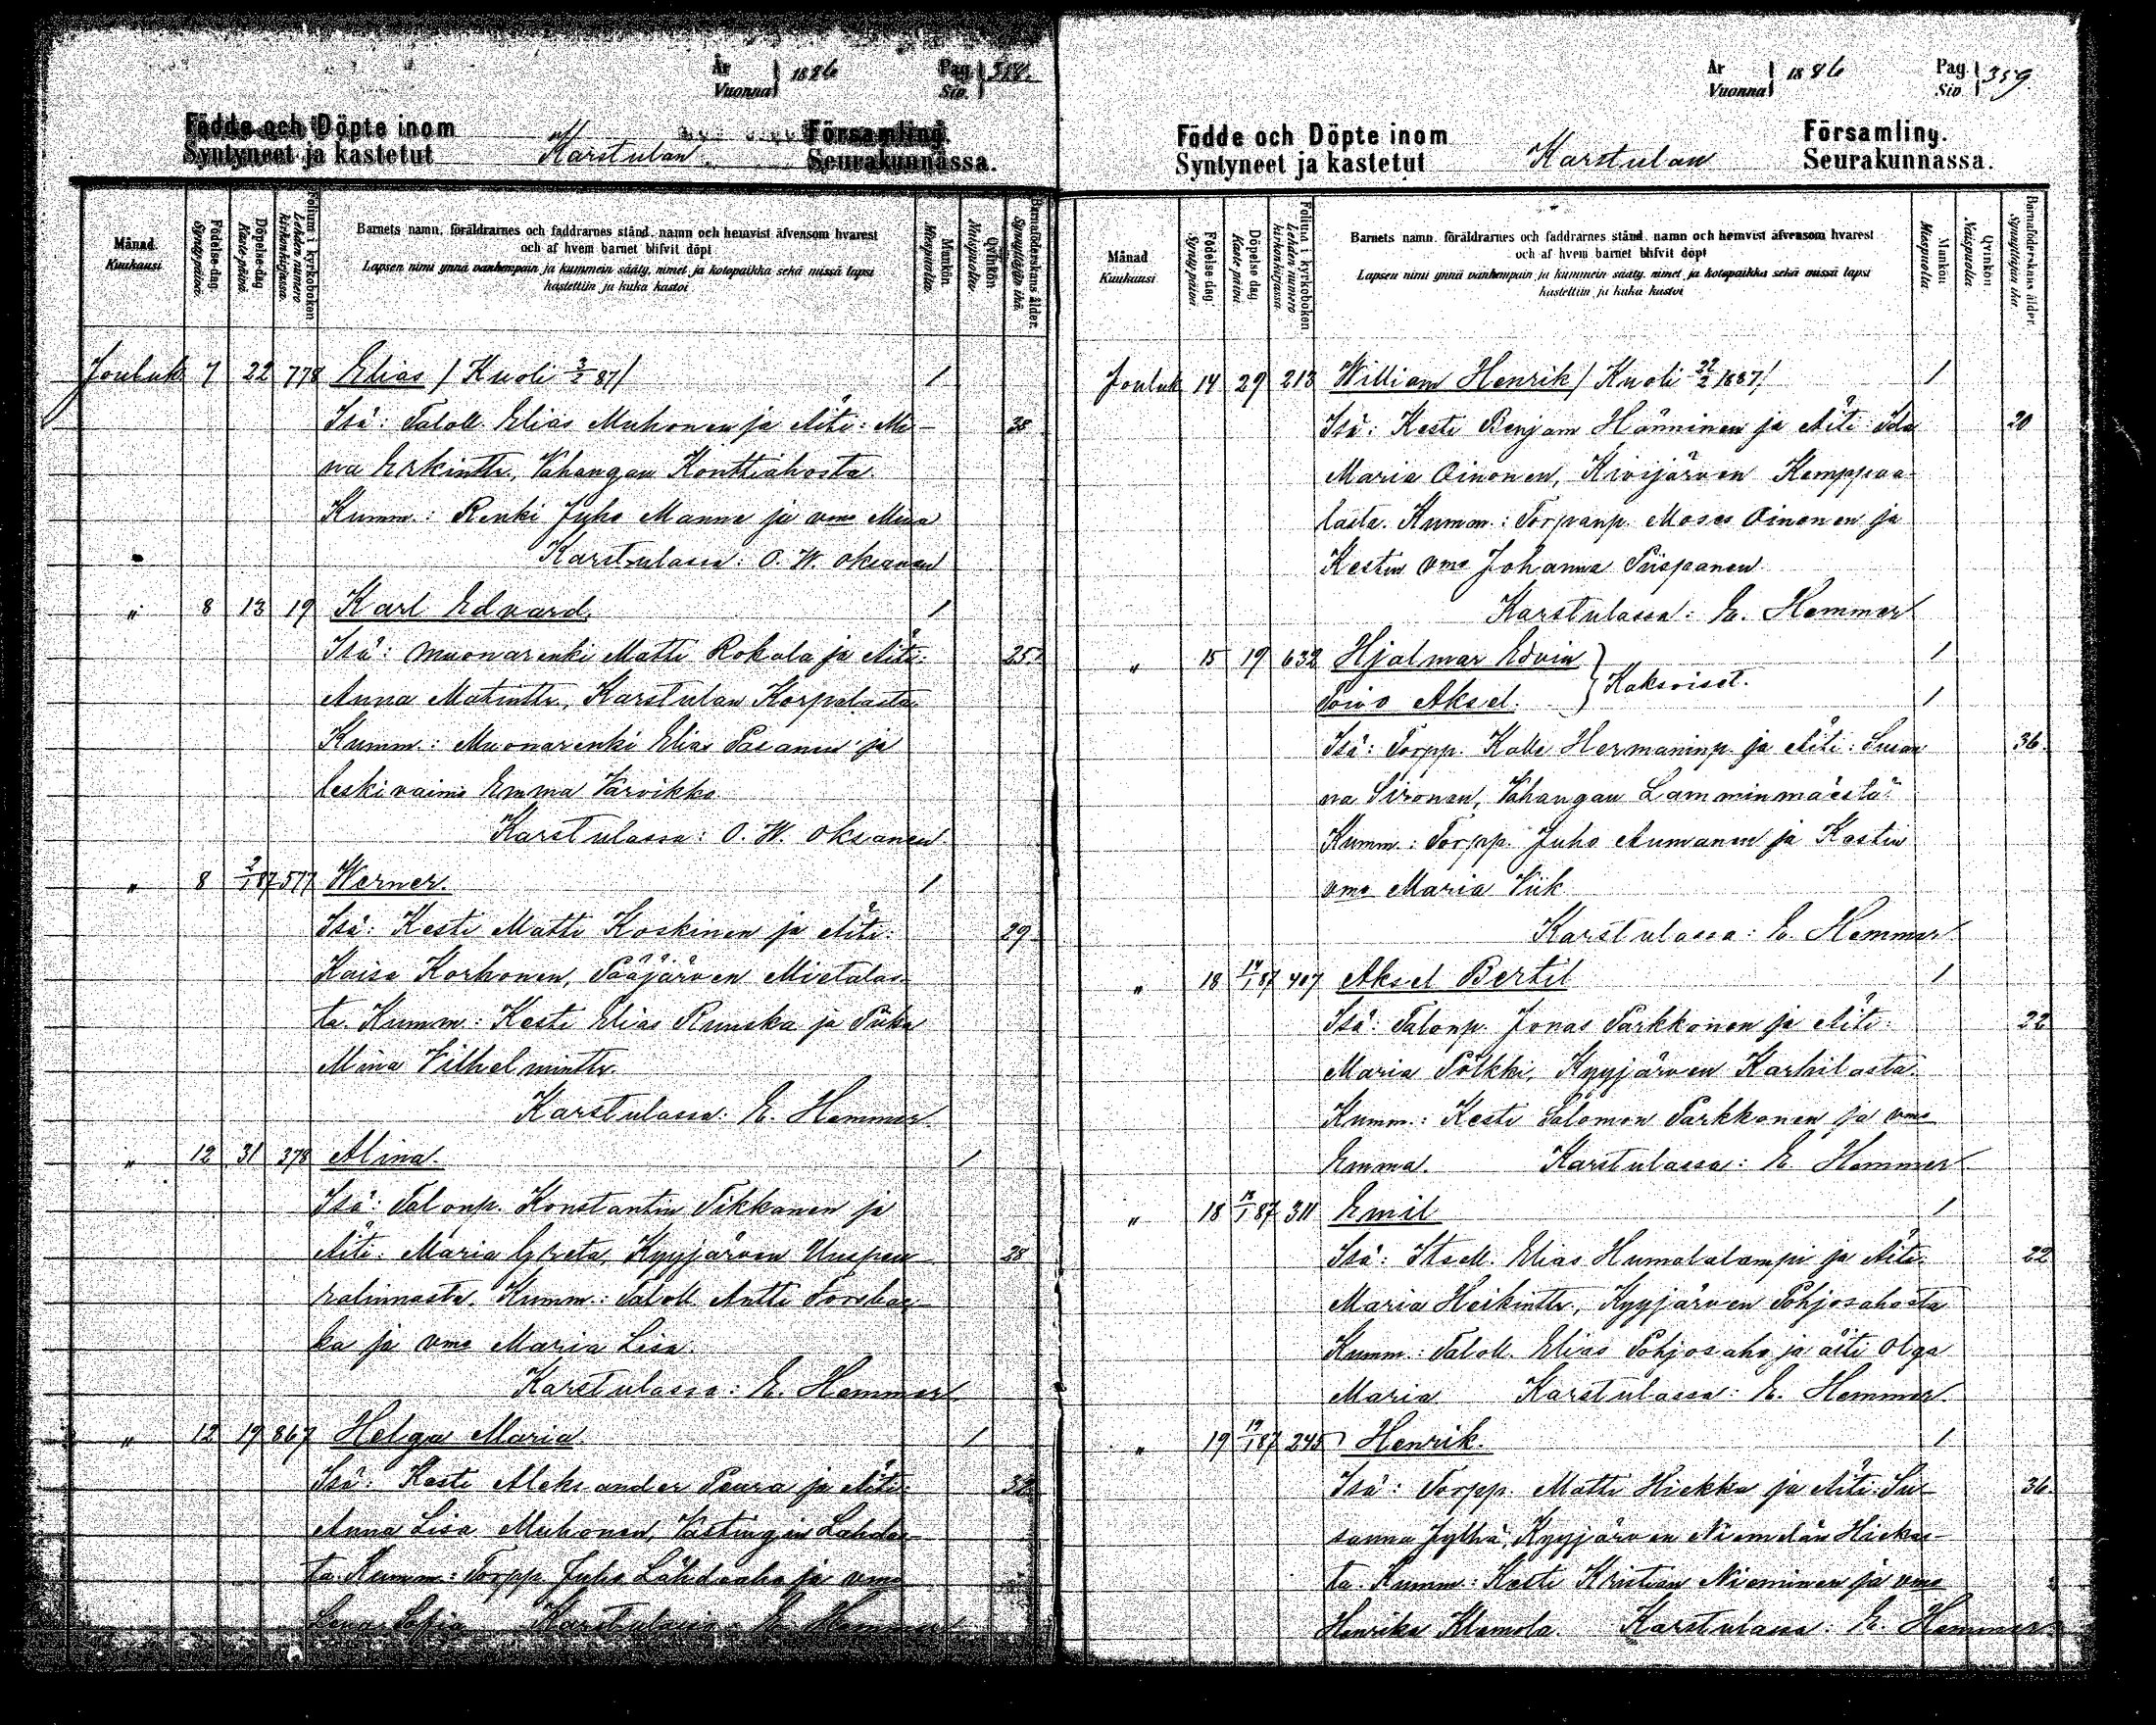 År Vuonna 1886 Pag. Siv. 358.
Födde och Döpte inom Karstulan Församling.
Syntyneet ja kastetut Seurakunnassa.
Månad. Kuukausi
Födelse-dag. Synty-päivä.
Döpelse-dag. Kaste-päivä.
Folium i kyrkoboken Lehden numero kirkonkirjassa.
Barnets namn, föräldrarnes och faddrarnes stånd, namn och hemvist äfvensom hvarest
och af hvem barnet blifvit döpt
Lapsen nimi ynnä vanhempain ja kummein sääty, nimet ja kotopaikka sekä missä lapsi
kastettiin ja kuka kastoi
Mankön Miespuolia.
Qvinkön Naispuolia.
Barnaföderskans ålder. Synnyttäjän ikä.
Jouluk 7 22 778 Elias / Kuoli 3/2 87 / 1
Isä: Taloll. Elias Muhonen ja Äiti: Mi- 38
na Erkintr, Vahangan Konttiahosta.
Kumm.: Renki Juho Manne ja vmo Mina
Karstulassa: O. W. Oksanen
" 8 13 19 Karl Edvard. 1
Isä: Muonarenki Matti Rokala ja Äiti: 25.
Anna Matintr, Karstulan Korpalasta
Kumm.: Muonarenki Elias Pasanen ja
leskivaimo Emma Varvikko.
Karstulassa: O. W. Oksanen.
" 8 2/1 87 577 Werner. 1
Isä: Kesti Matti Koskinen ja Äiti: 29
Kaisa Korhonen, Pääjärven Mietalas-
ta. Kumm.: Kesti Elias Ruuska ja Piika
Mina Vilhelmintr.
Karstulassa: E. Hemmer.
" 12 31 378 Alina. 1
Isä: Talonp. Konstantin Tikkanen ja
Äiti: Maria Greta, Kyyjärven Uuspen- 28
ralinnasta. Kumm.: Taloll. Antti
ka ja vmo Maria Lisa.
Karstulassa: E. Hemmer
" 12 19 867 Helga Maria. 1
Isä: Kesti Aleksander Peura ja Äiti: 32
Anna Lisa Muhonen, Västingin Lahdas-
ta. Kumm.: Torpp. Juho Lähdeaho ja vmo
Lena Sofia Karstulassa: E. Hemmer
År Vuonna 1886 Pag. Siv. 359.
Födde och Döpte inom Karstulan Församling.
Syntyneet ja kastetut Seurakunnassa.
Månad Kuukausi
Födelse-dag. Synty-päivä
Döpelse-dag Kaste-päivä.
Folium i kyrkoboken Lehden numero kirkonkirjassa.
Barnets namn, föräldrarnes och faddrarnes stånd, namn och hemvist äfvensom hvarest
och af hvem barnet blifvit döpt
Lapsen nimi ynnä vanhempain ja kummein sääty, nimet ja kotopaikka sekä missä lapsi
kastettiin ja kuka kastoi
Mankön Miespuolia.
Qvinkön Naispuolia.
Barnaföderskans ålder. Synnyttäjän ikä
Jouluk 14 29 213 William Henrik / Kuoli 22/2 1887 / 1
Isä: Kesti Benjam Hänninen ja Äiti: Ida 20
Maria Oinonen, Kivijärven Kemppaa-
lasta. Kumm.: Torpanp. Moses Oinonen ja
Kestin vmo Johanna Piispanen
Karstulassa: E. Hemmer
" 15 19 632 Hjalmar Edvin 1
Toivo Aksel. } Kaksoiset. 1
Isä: Torpp. Kalle Hermaninp. ja Äiti: Susan- 36.
na Sironen, Vahangan Lamminmäestä.
Kumm.: Torpp. Juho Aumanen ja Kestin
vmo Maria Viik
Karstulassa: E. Hemmer
" 18 14/1 87 407 Aksel Bertil 1
Isä: Talonp. Jonas Parkkonen ja Äiti: 22
Maria Pölkki, Kyyjärven Karhilasta.
Kumm.: Kesti Salomon Parkkonen ja vmo
Emma. Karstulassa: E. Hemmer
" 18 13/1 87 311 Emil 1
Isä: Itsell. Elias Humalalampi ja Äiti: 22
Maria Heikintr, Kyyjärven Pohjosahosta
Kumm.: Taloll. Elias Pohjosaho ja äiti Olga
Maria Karstulassa: E. Hemmer.
" 19 19/1 87 245 Henrik. 1
Isä: Torpp. Matti Hiekka ja Äiti: Su- 36.
sanna Jylhä, Kyyjärven Niemelän Hiekas-
ta. Kumm.: Kesti Kristian Nieminen ja vmo
Henrika Klemola. Karstulassa: E. Hemmer